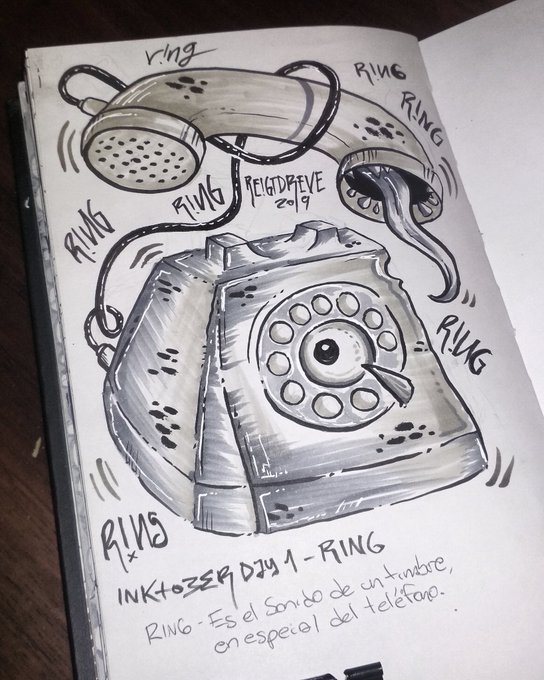 r!ng
R!NG
R!NG
R!NG
R!NG
REIGTDREVE
2019
R!NG
R!NG
INKtoBER DJy 1 - RING
RING - Es el sonido de un timbre,
en especial del teléfono.